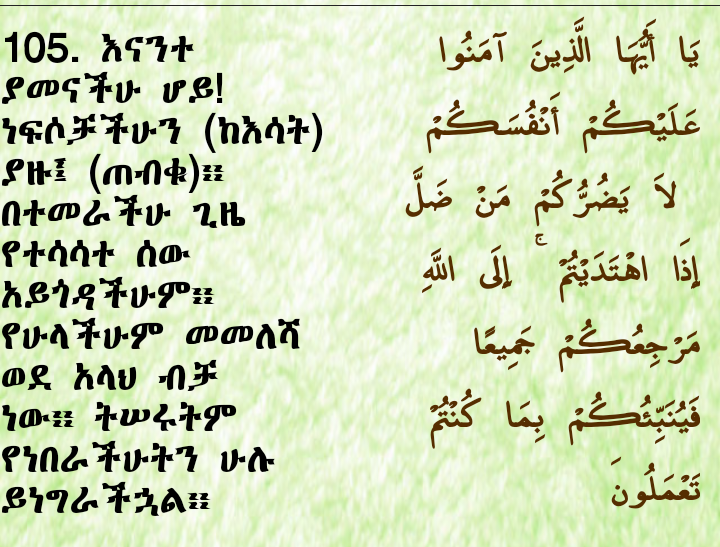 105. እናንተ
ያመናችሁ ሆይ!
ነፍሶቻችሁን (ከእሳት)
ያዙ፤ (ጠብቁ)፡፡
በተመራችሁ ጊዜ
የተሳሳተ ሰው
አይጎዳችሁም፡፡
የሁላችሁም መመለሻ
ወደ አላህ ብቻ
ነው፡፡ ትሠሩትም
የነበራችሁትን ሁሉ
ይነግራችኋል፡፡
يَا أَيُّهَا الَّذِينَ آمَنُوا
عَلَيْكُمْ أَنْفُسَكُمْ
لاَ يَضُرُّكُمْ مَنْ ضَلَّ
إِذَا اهْتَدَيْتُمْ ۚ إِلَى اللَّهِ
مَرْجِعُكُمْ جَمِيعًا
فَيُنَبِّئُكُمْ بِمَا كُنْتُمْ
تَعْمَلُونَ